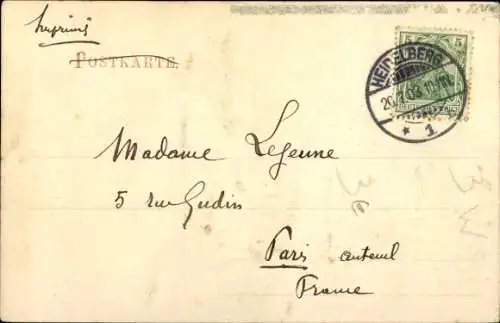 Imprimé
POSTKARTE.
5 5
HEIDELBERG
* 1.
Madame Lejeune
5 rue Gudin
Paris auteuil
France